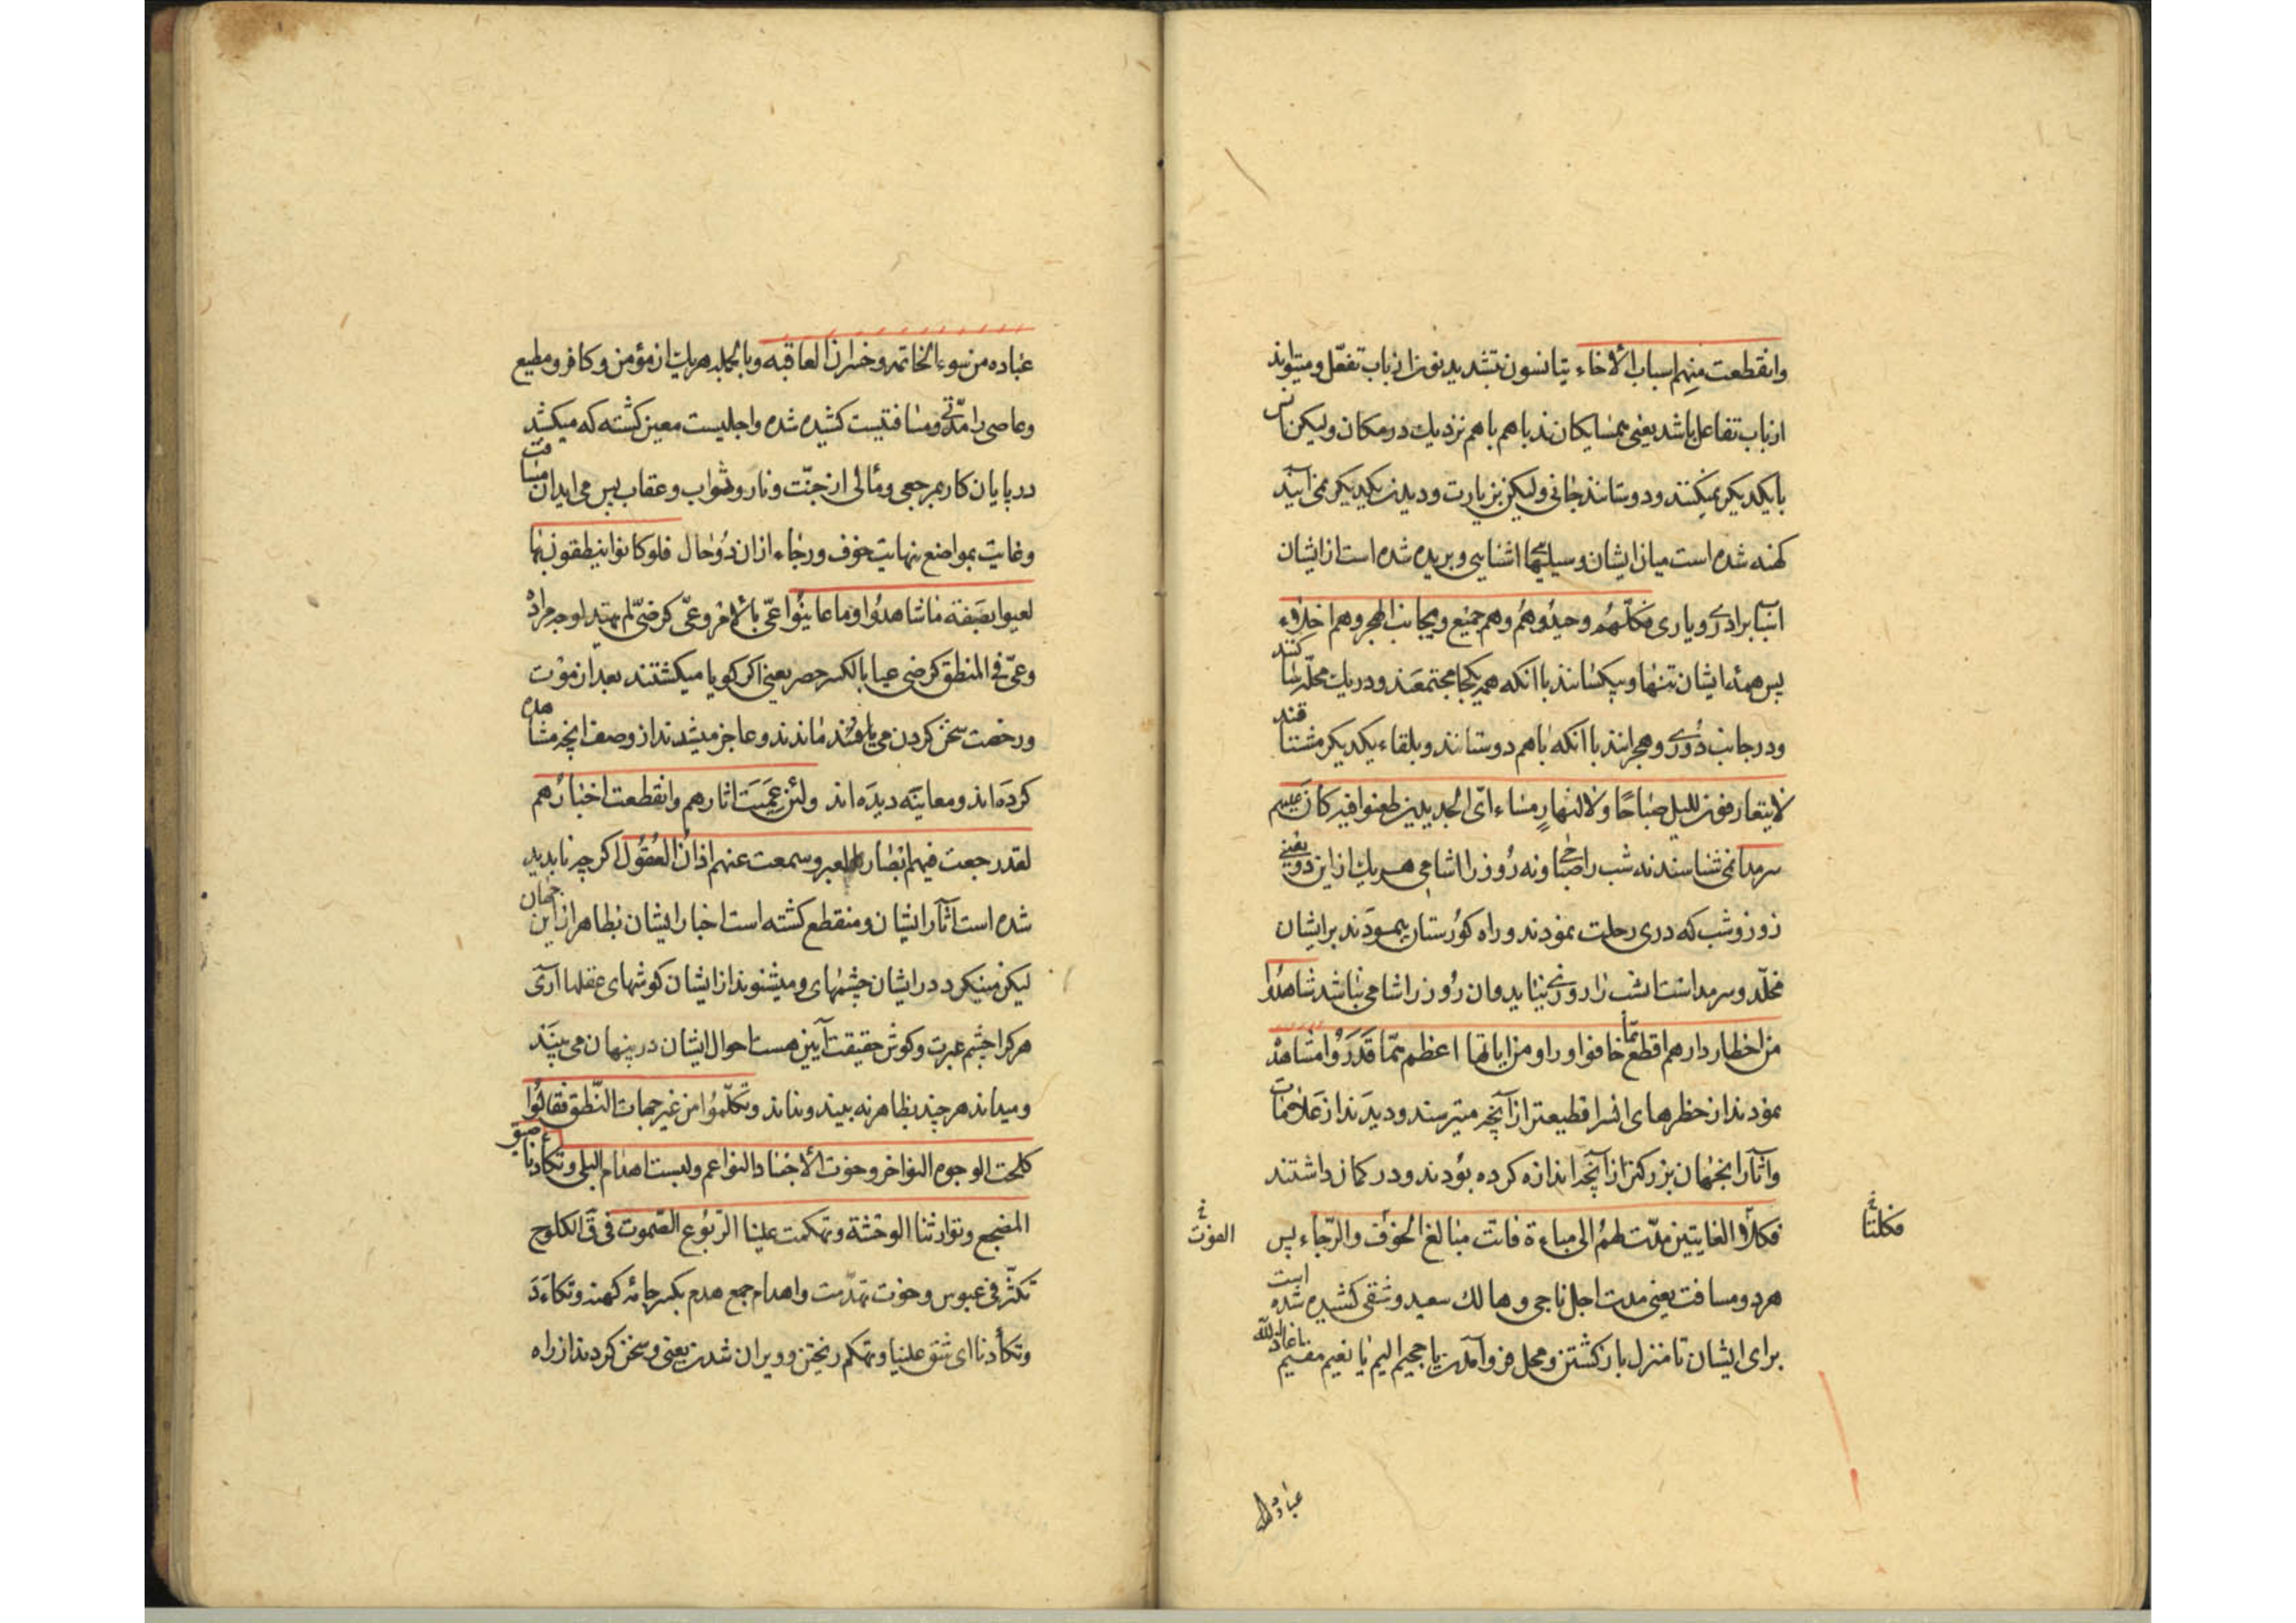 وانقطعت منهم اسباب الأخاء يتانسون بتشديد نون از باب تفعّل و میتواند
از باب تفاعل باشد یعنی همسایکان‌ند باهم باهم نزدیك در مکان ولیکن انس
بایکدیکر نمیکنند و دوستانند جانی ولیکن بزیارت و دیدن یکدیکر نمی آیند
کهنه شده است میان ایشان وسیلهای اشنایی و بریده شده است از ایشان
اسباب برادری و یاری فكلّهم وحيدٌ وهُم وهم جميع وبجانب الهجر وهم اخلاء
پس همهٔ ایشان تنها و بیکسانند با انکه همه یکجا مجتمعند و در یك محلّه ساکنند
و در جانب دوری و هجرانند با انکه باهم دوستانند و بلقاء یکدیکر مشتاقند
لا يتعارفون لليل صباحًا ولا لنهارٍ مساء ائ الجديدين ظعنوا فيه كان عليهم
سرمدا نمی شناسند نه شب را صباحی و نه روز را شامی هر یك از این دو یعنی
روز و شب که دری رحلت نمودند و راه کورستان پیمودند بر ایشان
مخلّد و سرمد است شب را روزی نیاید و ان روز را شامی نباشد شاهدُوا
من اخطار دارهم اقطع ممّا خافوا وراو من اياتها اعظم ممّا قَدَرُوا مشاهده
نمودند از خطرهای انسرا قطیعتر از آنچه میترسند و دیدند از علامات
و آثار انجهان بزرکتر از آنچه اندازه کرده بودند و در کمان داشتند
فكلا الغايتين مدّت لهم الى مباءة فاتت مبالغ الخوف والرّجاء پس
فكلتا خ
الفوت خ
هر دو مسافت یعنی مدت اجل ناجی و هالك سعید و شقی کشیده شده است
برای ایشان تا منزل باز کشتن و محل فرو آمدن یا جحیم الیم یا نعیم مقیم اعاذ الله
عباده
عباده من سوء الخاتمه و خسران العاقبه و بالجمله هریك از مؤمن و کافر و مطیع
و عاصی را مدّتی و مسافتیست کشیده شده و اجلیست معین کشته که میکشد
در پایان کار بمرجعی و مآلی از جنّت و نار و ثواب و عقاب پس می اید ان مسافت
و غایت بمواضع نهایت خوف و رجاء از ان دو حال فلو كانوا ينطقون بها
لعيوا بصفة ما شاهدُوا وما عاينُوا عیّ بالأمر وعیّ کرضیّ لم يهتد لوجه مراده
وعیّ فی المنطق کرضی عیا بالکسر حصر یعنی اکر کویا میکشتند بعد از موت
و رخصت سخن کردن می یافتند ماندند و عاجز میشدند از وصف انچه مشاهده
کرده‌اند و معاینه دیده‌اند ولئن عميَت اثارهم وانقطعت اخبارُهم
لقد رجعت فيهم ابصار العبر وسمعت عنهم اذان العُقُول اکرچه ناپدید
شده است آثار ایشان و منقطع کشته است اخبار ایشان بظاهر از این جهان
لیکن مینکرد در ایشان چشمهای و میشنوند از ایشان کوشهای عقلها آری
هرکرا چشم عبرت و کوش حقیقت آیین هست احوال ایشان در پنهان می بیند
و میداند هرچند بظاهر نه بیند و نداند وتكلّموُا من غير جهات النّطق فقالُوا
كلحت الوجوه النواضر وخوت الأجساد النواعم ولبسنا اهدام البلى وتكاءدنا ضيق
المضجع وتوارثنا الوحشة وتهكمت علينا الرّبُوع الصّموت فی ق الكلوح
تكشّر فی عبوس و خوت تهدّمت و اهدام جمع هدم بکسر جامه کهنه و تکاءَدَ
و تکأدنا ای شق علینا و تهکم ریختن و ویران شدن یعنی و سخن کردند از راه